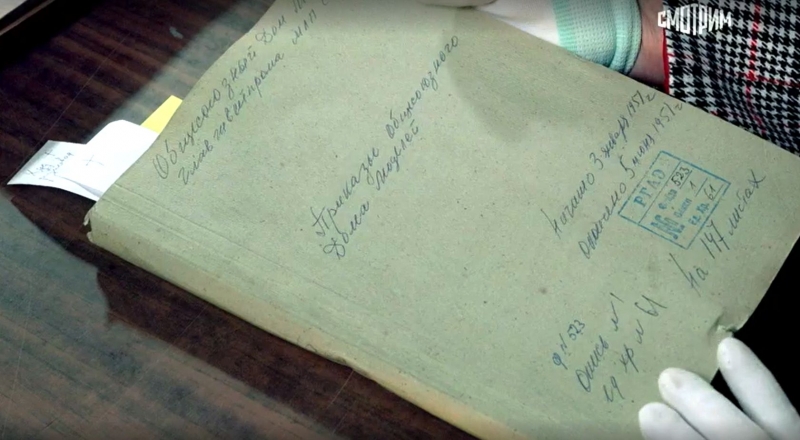 СМОТРИМ
Общесоюзный Дом
Главшвейпрома МЛП
Приказы общесоюзного
Дома моделей
Начато 3 января 1957 г
окончено 5 июня 1957 г
РГАЭ
Фонд 523
Опись 1
Ед. хр. 61
На 147 листах
Ф. N 523
Опись N 1
ед хр N 61